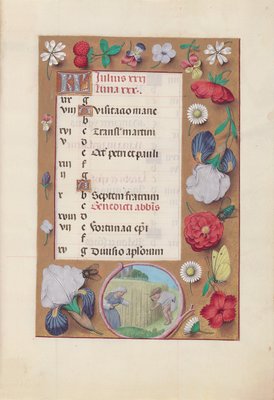 KL Julius xxxi
luna xxx.
xix g
viii A Visitacio marie
b
xvi c Transl' martini
v d
e Oct' petri et pauli
xiii f
ii g
A
x b Septem fratrum
c Benedicti abbis
xviii d
vii e Fortunati epi
f
xv g Divisio aplorum